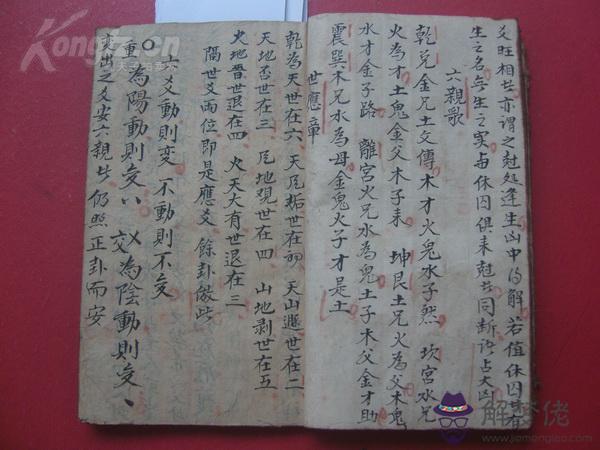 爻旺相者亦謂之尅处逢生凶中得解 若值休囚
生之名無生之实与休囚俱来尅者同断訣占大凶
六親歌
乾兌金兄土父傳木才火鬼水子然 坎宮水兄
火為才土鬼金父木子来 坤艮土兄火為父木鬼
水才金子路 離宮火兄水為鬼土子木父金才助
震巽木兄水為母金鬼火子才是土
世應章
乾為天世在六 天風姤世在初 天山遯世在二
天地否世在三 風地観世在四 山地剥世在五
火地晋世退在四 火天大有世退在三
隔世爻兩位即是應爻 餘卦倣此
六爻動則变 不動則不变
重為陽動則变 交為陰動則变
变出之爻安六親者 仍照正卦而安
Kongfz.com
解夢佬
www.jiemenglao.com